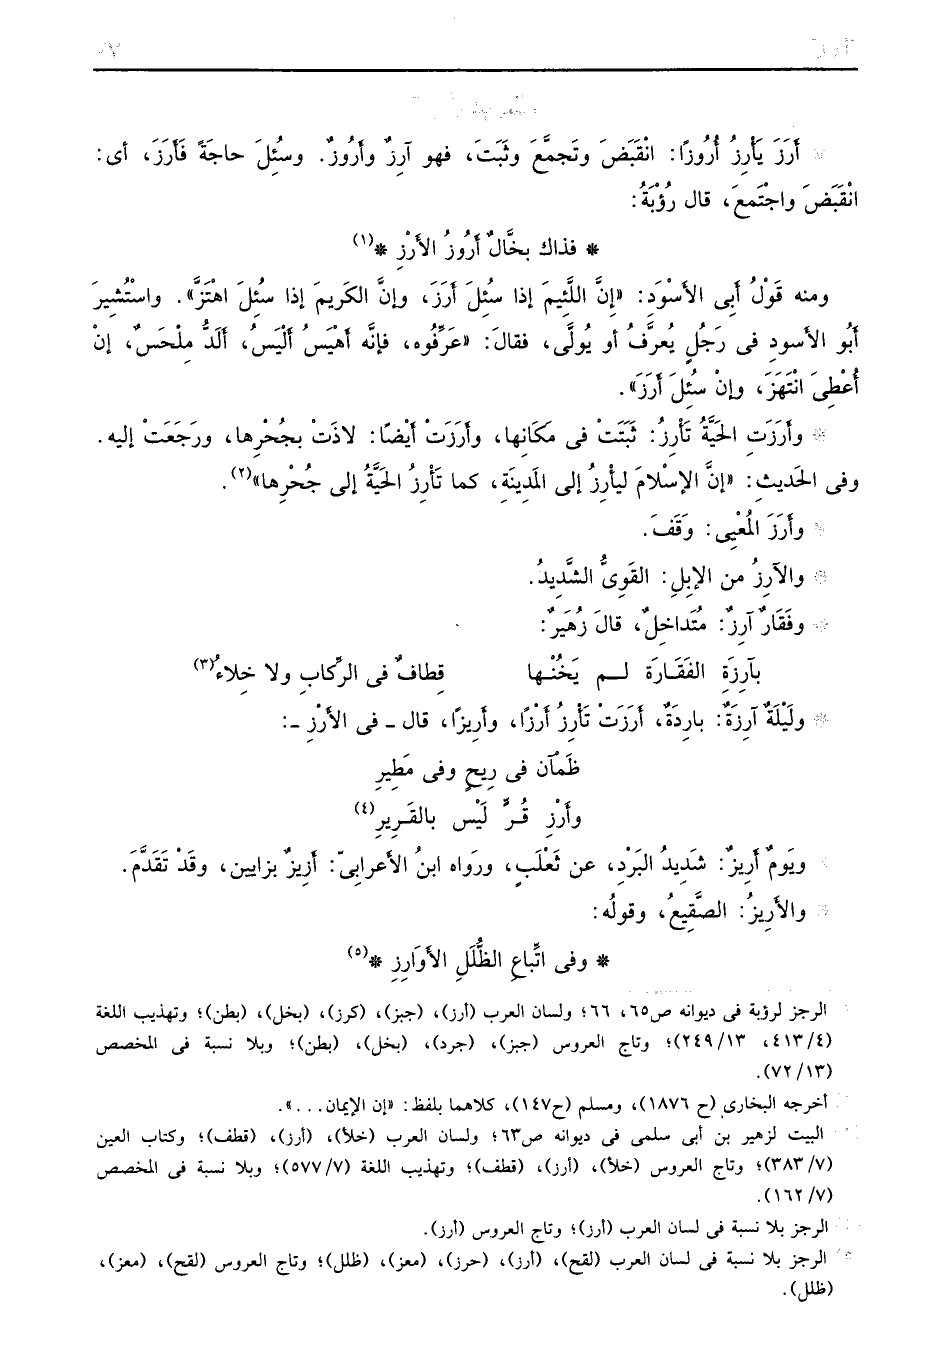 * أَرَزَ يَأْرِزُ أُرُوزًا: انْقَبَضَ وتَجمَّعَ وثَبَتَ، فهو آرِزٌ وأَرُوزٌ. وسُئِلَ حاجَةً فَأَرَزَ، أى:
انْقَبَضَ واجْتَمعَ، قال رُؤْبَةُ:
* فذاك بخَّالٌ أَرُوزُ الأَرْزِ *(١)
ومنه قَوْلُ أَبِى الأسْوَدِ: «إنَّ اللَّئِيمَ إذا سُئِلَ أَرَزَ، وإنَّ الكَرِيمَ إذا سُئِلَ اهْتَزَّ». واسْتُشِيرَ
أَبُو الأسودِ فى رَجُلٍ يُعرَّفُ أو يُولَّى، فقالَ: «عَرِّفُوه، فإنَّه أَهْيَسُ أَلْيَسُ، أَلَدُّ مِلْحَسٌ، إنْ
أُعْطِىَ انْتَهَزَ، وإنْ سُئِلَ أَرَزَ».
* وأَرَزَتِ الحَيَّةُ تَأْرِزُ: ثَبَتَتْ فى مَكَانِها، وأَرَزَتْ أَيْضًا: لاذَتْ بجُحْرِها، ورَجَعَتْ إليه.
وفى الحَديثِ: «إنَّ الإسْلامَ ليأْرِزُ إلى المَدِينَةِ، كما تَأْرِزُ الحَيَّةُ إلى جُحْرِها»(٢).
* وأَرَزَ المُعْيِى: وَقَفَ.
* والآرِزُ من الإبِلِ: القَوِىُّ الشَّدِيدُ.
* وفَقَارٌ آرِزٌ: مُتَداخِلٌ، قالَ زُهَيرٌ:
بآرِزَةِ الفَقَارَة لـم يَخُنْـها قِطافٌ فى الرِّكابِ ولا خِلاءُ(٣)
* ولَيْلَةٌ آرِزَةٌ: بارِدَةٌ، أَرَزَتْ تَأْرِزُ أَرْزًا، وأَرِيزًا، قال ـ فى الأَرْزِ ـ:
ظَمْآن فى رِيحٍ وفى مَطِيرِ
وأَرْزِ قُـرٍّ لَيْس بالقَـرِيرِ(٤)
* ويَومٌ أَرِيزٌ: شَدِيدُ البَرْدِ، عن ثَعْلَبٍ، ورَواه ابنُ الأعرابىّ: أَزِيزٌ بزايين، وقَدْ تَقَدَّمَ.
* والأَرِيزُ: الصَّقِيعُ، وقولُه:
* وفى اتِّباعِ الظُّلَلِ الأوَارِزِ *(٥)
الرجز لرؤبة فى ديوانه ص٦٥، ٦٦؛ ولسان العرب (أرز)، (جبز)، (كرز)، (بخل)، (بطن)؛ وتهذيب اللغة
(٤/٤١٣، ١٣/٢٤٩)؛ وتاج العروس (جبز)، (جرد)، (بخل)، (بطن)؛ وبلا نسبة فى المخصص
(١٣/٧٢).
أخرجه البخارى (ح ١٨٧٦)، ومسلم (ح١٤٧)، كلاهما بلفظ: «إن الإيمان...».
البيت لزهير بن أبى سلمى فى ديوانه ص٦٣؛ ولسان العرب (خلأ)، (أرز)، (قطف)؛ وكتاب العين
(٧/٣٨٣)؛ وتاج العروس (خلأ)، (أرز)، (قطف)؛ وتهذيب اللغة (٧/٥٧٧)؛ وبلا نسبة فى المخصص
(٧/١٦٢).
الرجز بلا نسبة فى لسان العرب (أرز)؛ وتاج العروس (أرز).
الرجز بلا نسبة فى لسان العرب (لقح)، (أرز)، (حرز)، (معز)، (ظلل)؛ وتاج العروس (لقح)، (معز)،
(ظلل).